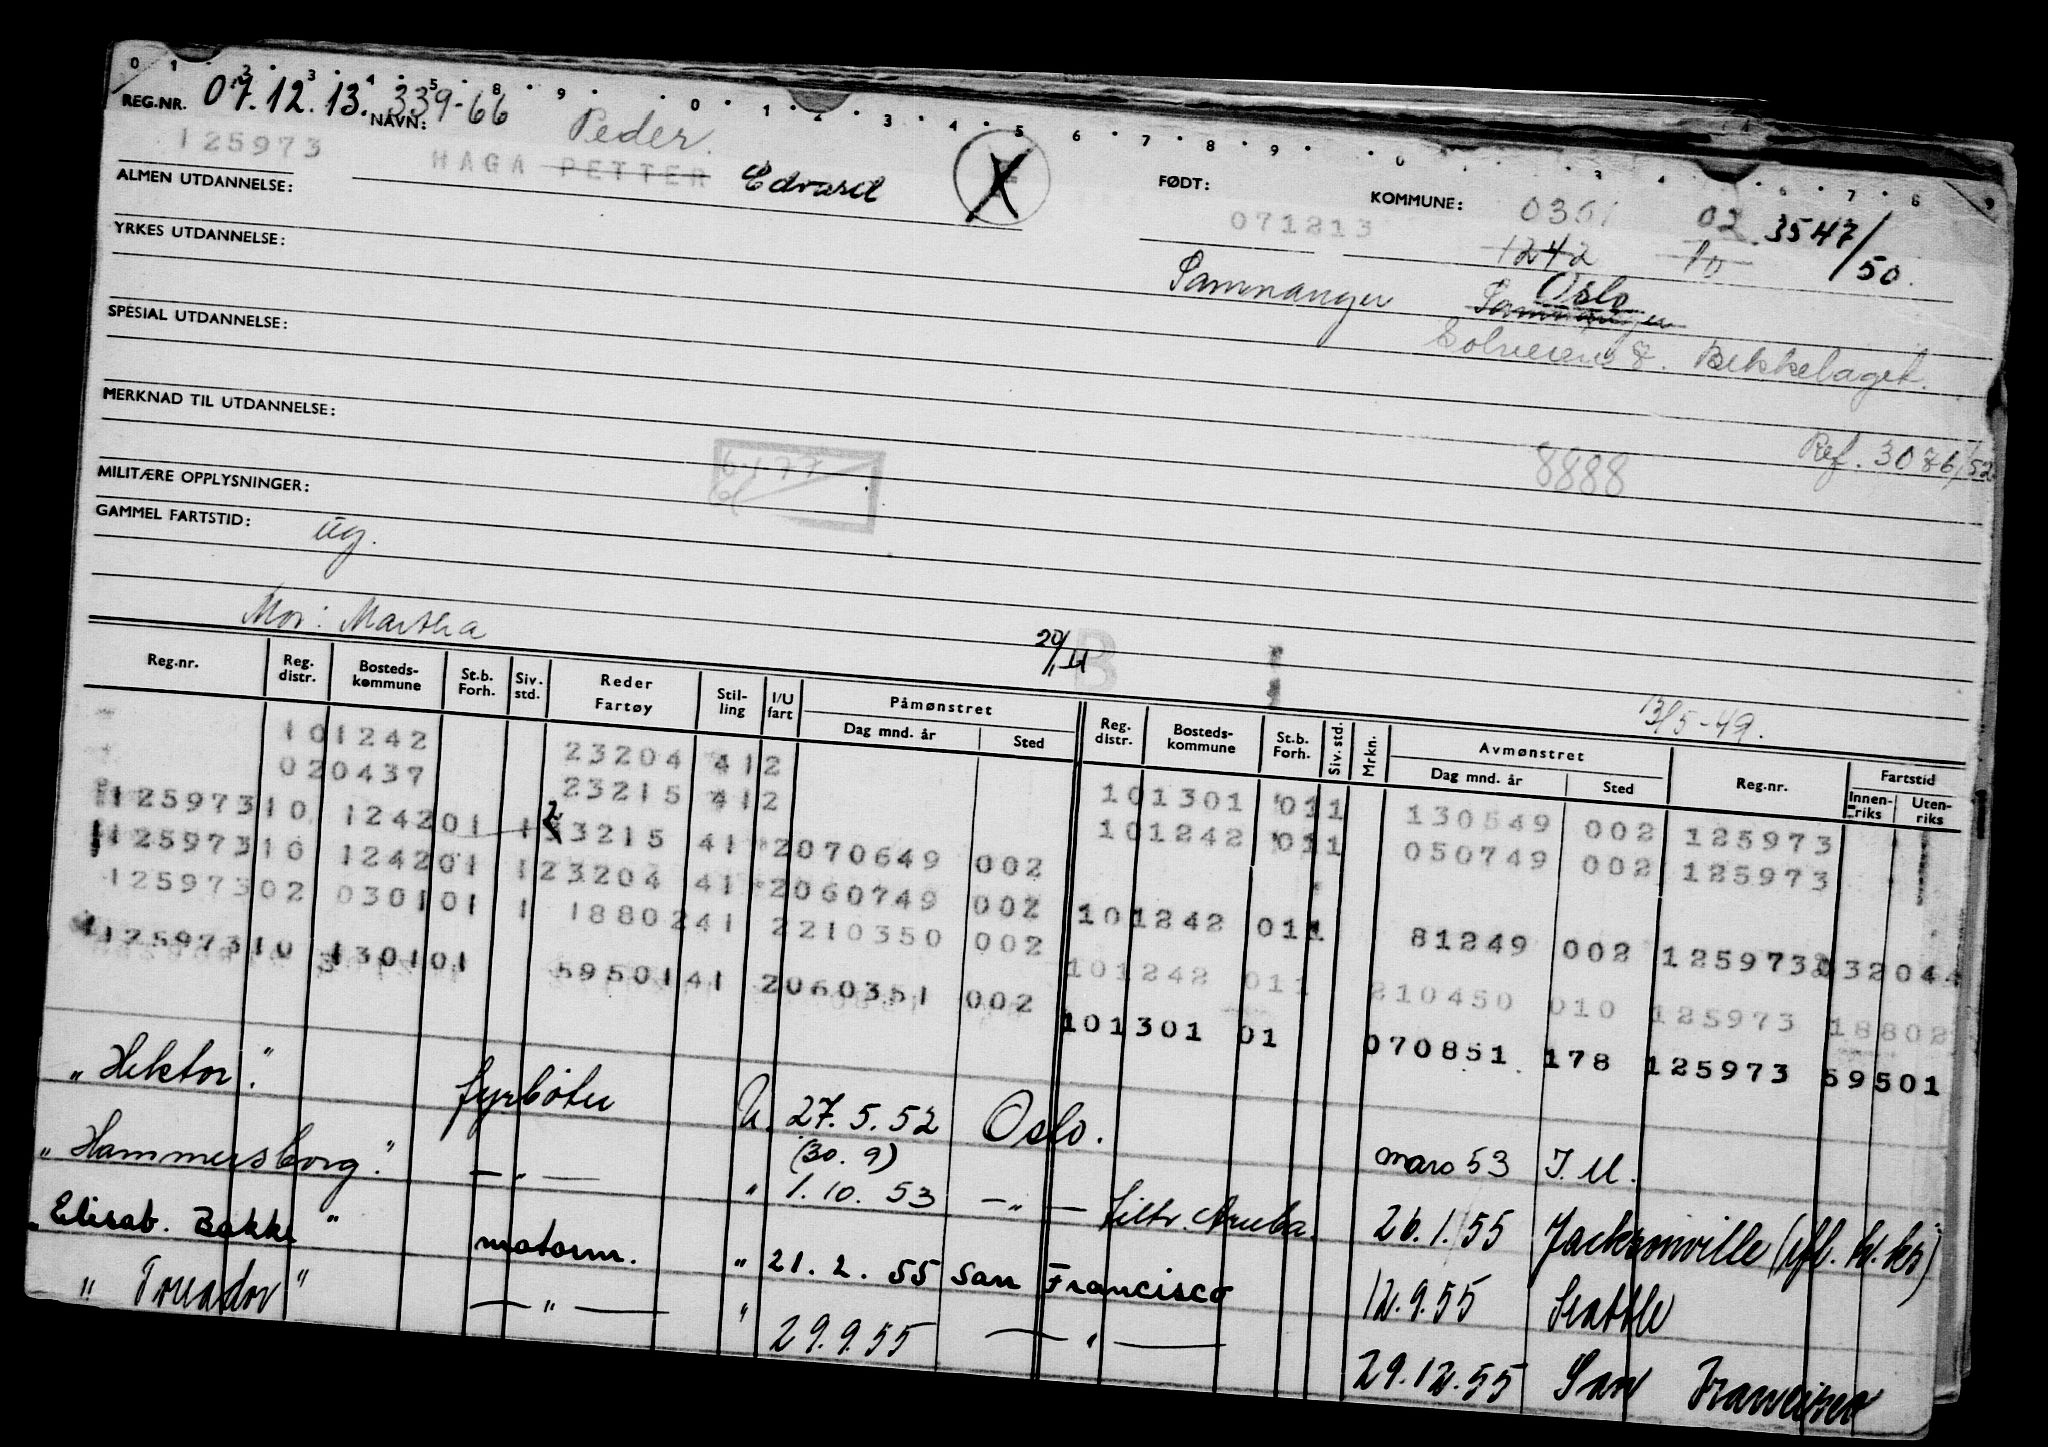 0 1 2 3 4 5 8 9 0 1 2 3 4 5 6 7 8 9 0 3 4 6 7 8 9
REG.NR. 07.12.13. NAVN: 339-66 Peder.
125973 HAGA PETTER Edvard X FØDT: KOMMUNE: 0301 02 3547/50.
ALMEN UTDANNELSE: 071213 1242 10
YRKES UTDANNELSE: Samnanger Oslo Samnanger
Solveien 8. Bekkelaget.
SPESIAL UTDANNELSE:
MERKNAD TIL UTDANNELSE: 8888 Ref. 3086/52
MILITÆRE OPPLYSNINGER:
GAMMEL FARTSTID: ug.
Mor: Martha B 13/5-49.
Reg.nr. Reg. distr. Bosteds-kommune St.b. Forh. Siv. std. Reder Fartøy Stil-ling I/U fart Påmønstret Dag mnd. år Sted Reg. distr. Bosteds-kommune St.b. Forh. Siv. std. Mrkn. Avmønstret Dag mnd. år Sted Reg.nr. Fartstid Innen-riks Uten-riks
101242 23204 412 101301 011 130549 002 125973
020437 23215 412 101242 011 050749 002 125973
125973 10 1242 01 1 23215 41 2 070649 002
125973 10 1242 01 1 23204 41 2 060749 002 101242 011 81249 002 125973
125973 02 0301 01 1 18802 41 2 210350 002 101242 011 210450 010 125973 18802
125973 10 1301 01 59501 41 2 060351 002 101301 01 070851 178 125973 59501
„Hektor." fyrbøter U. 27.5.52 Oslo. mars 53 I.U.
(30.9)
„Hammersborg." —„— „ 1.10.53 —„— Aruba. 26.1.55 Jacksonville
„Elisab. Bakke" motorm. „ 21.2.55 San Francisco 12.9.55 Seattle
„Toreador" —„— „ 29.9.55 —„— 29.12.55 San Francisco